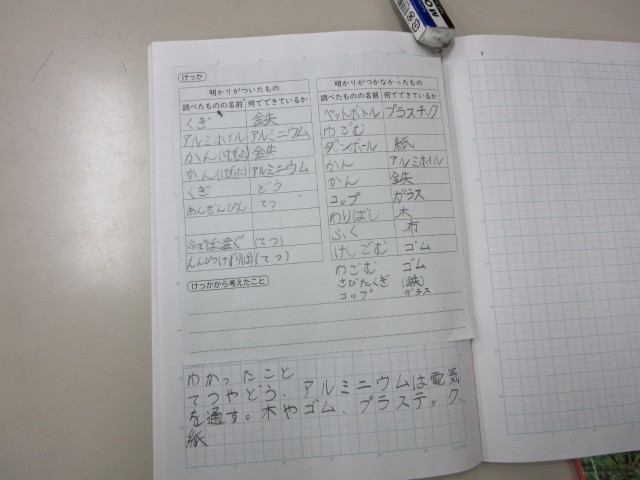 けっか
明かりがついたもの
調べたものの名前 何でできているか
くぎ 鉄
アルミホイル アルミニウム
かん 鉄
かん アルミニウム
くぎ どう
あんぜんぴん てつ
(てつ)
(てつ)
明かりがつかなかったもの
調べたものの名前 何でできているか
ペットボトル プラスチック
わごむ
ダンボール 紙
かん アルミホイル
かん 鉄
コップ ガラス
わりばし 木
ふく 布
けしごむ ゴム
わごむ ゴム
さびたくぎ (鉄)
コップ ガラス
けっかから考えたこと
わかったこと
てつやどう、アルミニウムは電気
を通す。木やゴム、プラステック
紙